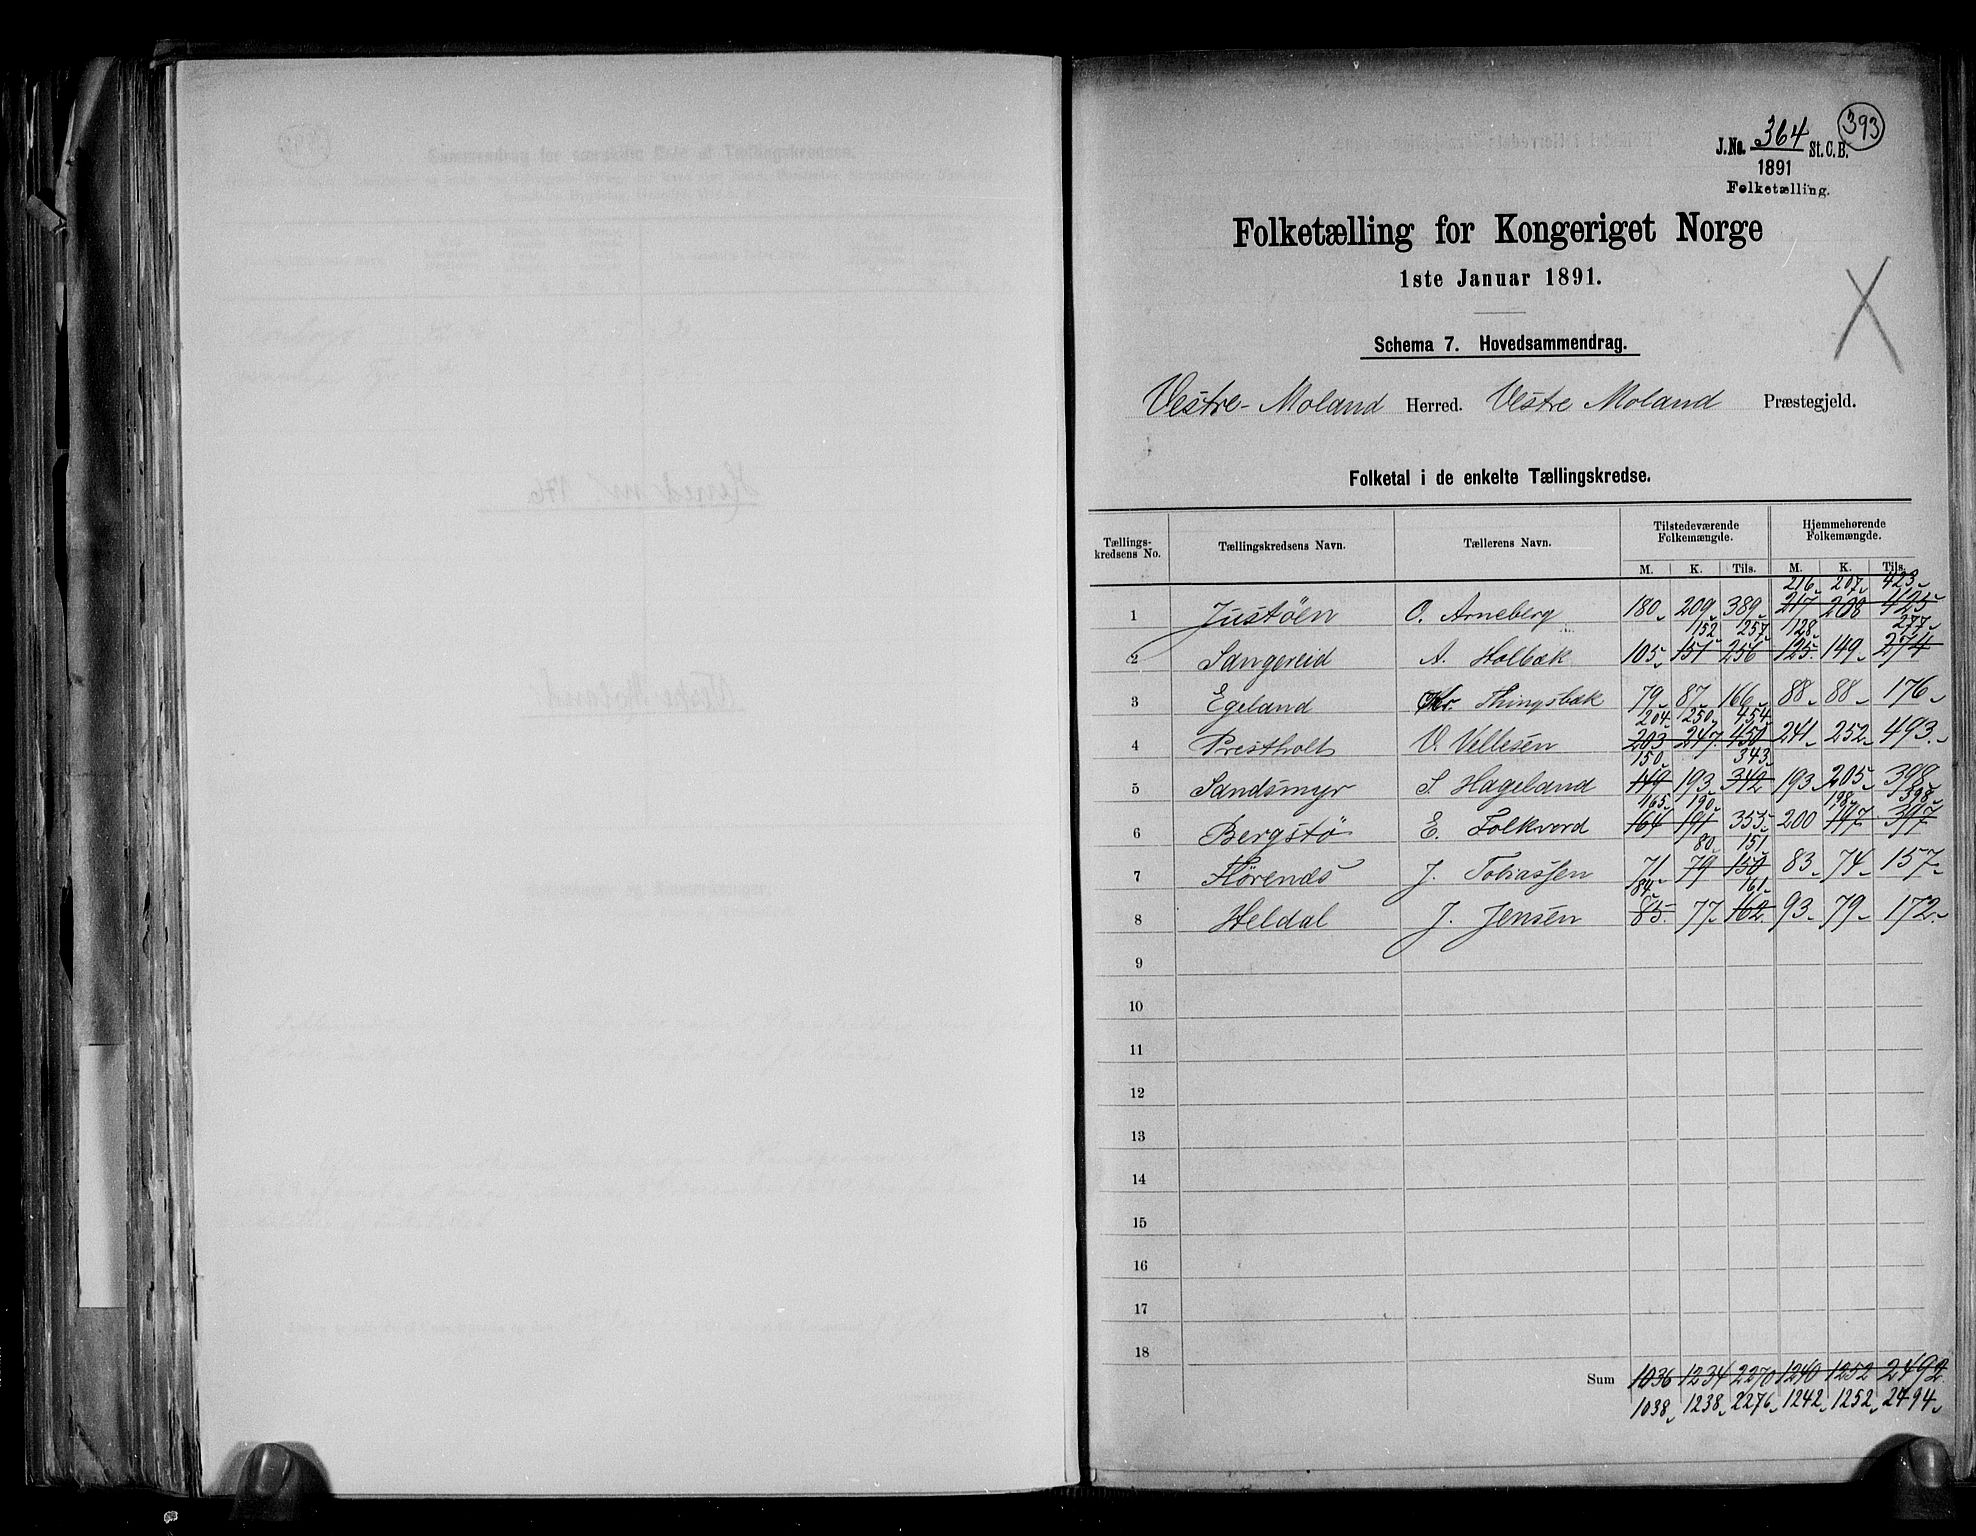 393
J.No. 364 St. C. B.
1891
Folketælling.
Folketælling for Kongeriget Norge
1ste Januar 1891.
Schema 7. Hovedsammendrag.
Vestre-Moland Herred. Vestre Moland Præstegjeld.
Folketal i de enkelte Tællingskredse.
Tællings-kredsens No. Tællingskredsens Navn. Tællerens Navn. Tilstedeværende Folkemængde. Hjemmehørende Folkemængde.
M. K. Tils. M. K. Tils.
216 207 423
1 Justöen O. Arneberg 180 209 389 217 208 425
152 257 128 277
2 Sangereid A. Holbæk 105 151 256 125 149 274
3 Egeland Kr. Thingsbæk 79 87 166 88 88 176
204 250 454
4 Prestholt V. Vellesen 203 247 450 241 252 493
150 343
5 Sandsmyr S. Hageland 149 193 342 193 205 398
165 190 198 398
6 Bergstö E. Folkvord 164 191 355 200 197 397
80 151
7 Hørenæs J. Tobiassen 71 79 150 83 74 157
84 161
8 Heldal J. Jensen 85 77 162 93 79 172
9
10
11
12
13
14
15
16
17
18
Sum 1036 1234 2270 1240 1252 2492
1038 1238 2276 1242 1252 2494